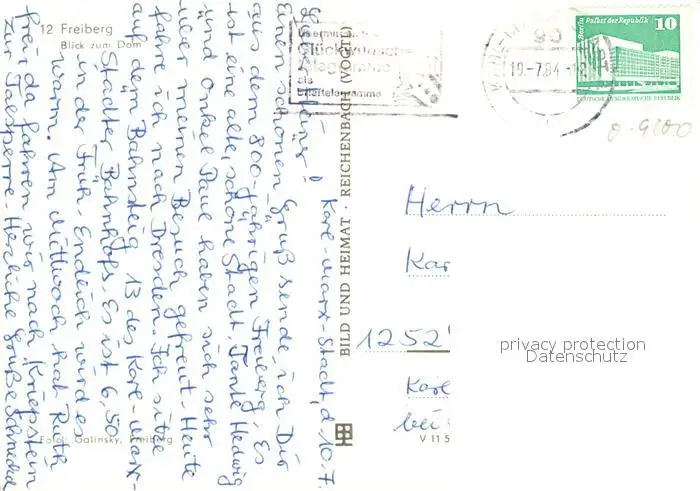 12 Freiberg
Blick zum Dom
Karl-Marx-Stadt, d. 10. 7.
Einen schönen Gruß sende ich Dir
aus dem 800-jährigen Freiberg. Es
ist eine alte, schöne Stadt. Tante Hedwig
und Onkel Paul haben sich sehr
über meinen Besuch gefreut. Heute
fahre ich nach Dresden. Ich sitze
auf dem Bahnsteig 13 des Karl-Marx-
Städter Bahnhofs. Es ist 6,50
in der Früh. Endlich wird es
warm. Am Mittwoch hat Ruth
frei, da fahren wir nach Kriebstein
zur Talsperre. Herzliche Grüße
Foto: Galinsky, Freiberg
BILD UND HEIMAT · REICHENBACH (VOGTL)
V 11 5
Glückwunsch
telegramme
als
Brieftelegramme
90
10.-7.84
Berlin Palast der Republik
10
DEUTSCHE DEMOKRATISCHE REPUBLIK
Herrn
Kar
1252
Karl
bei
privacy protection
Datenschutz